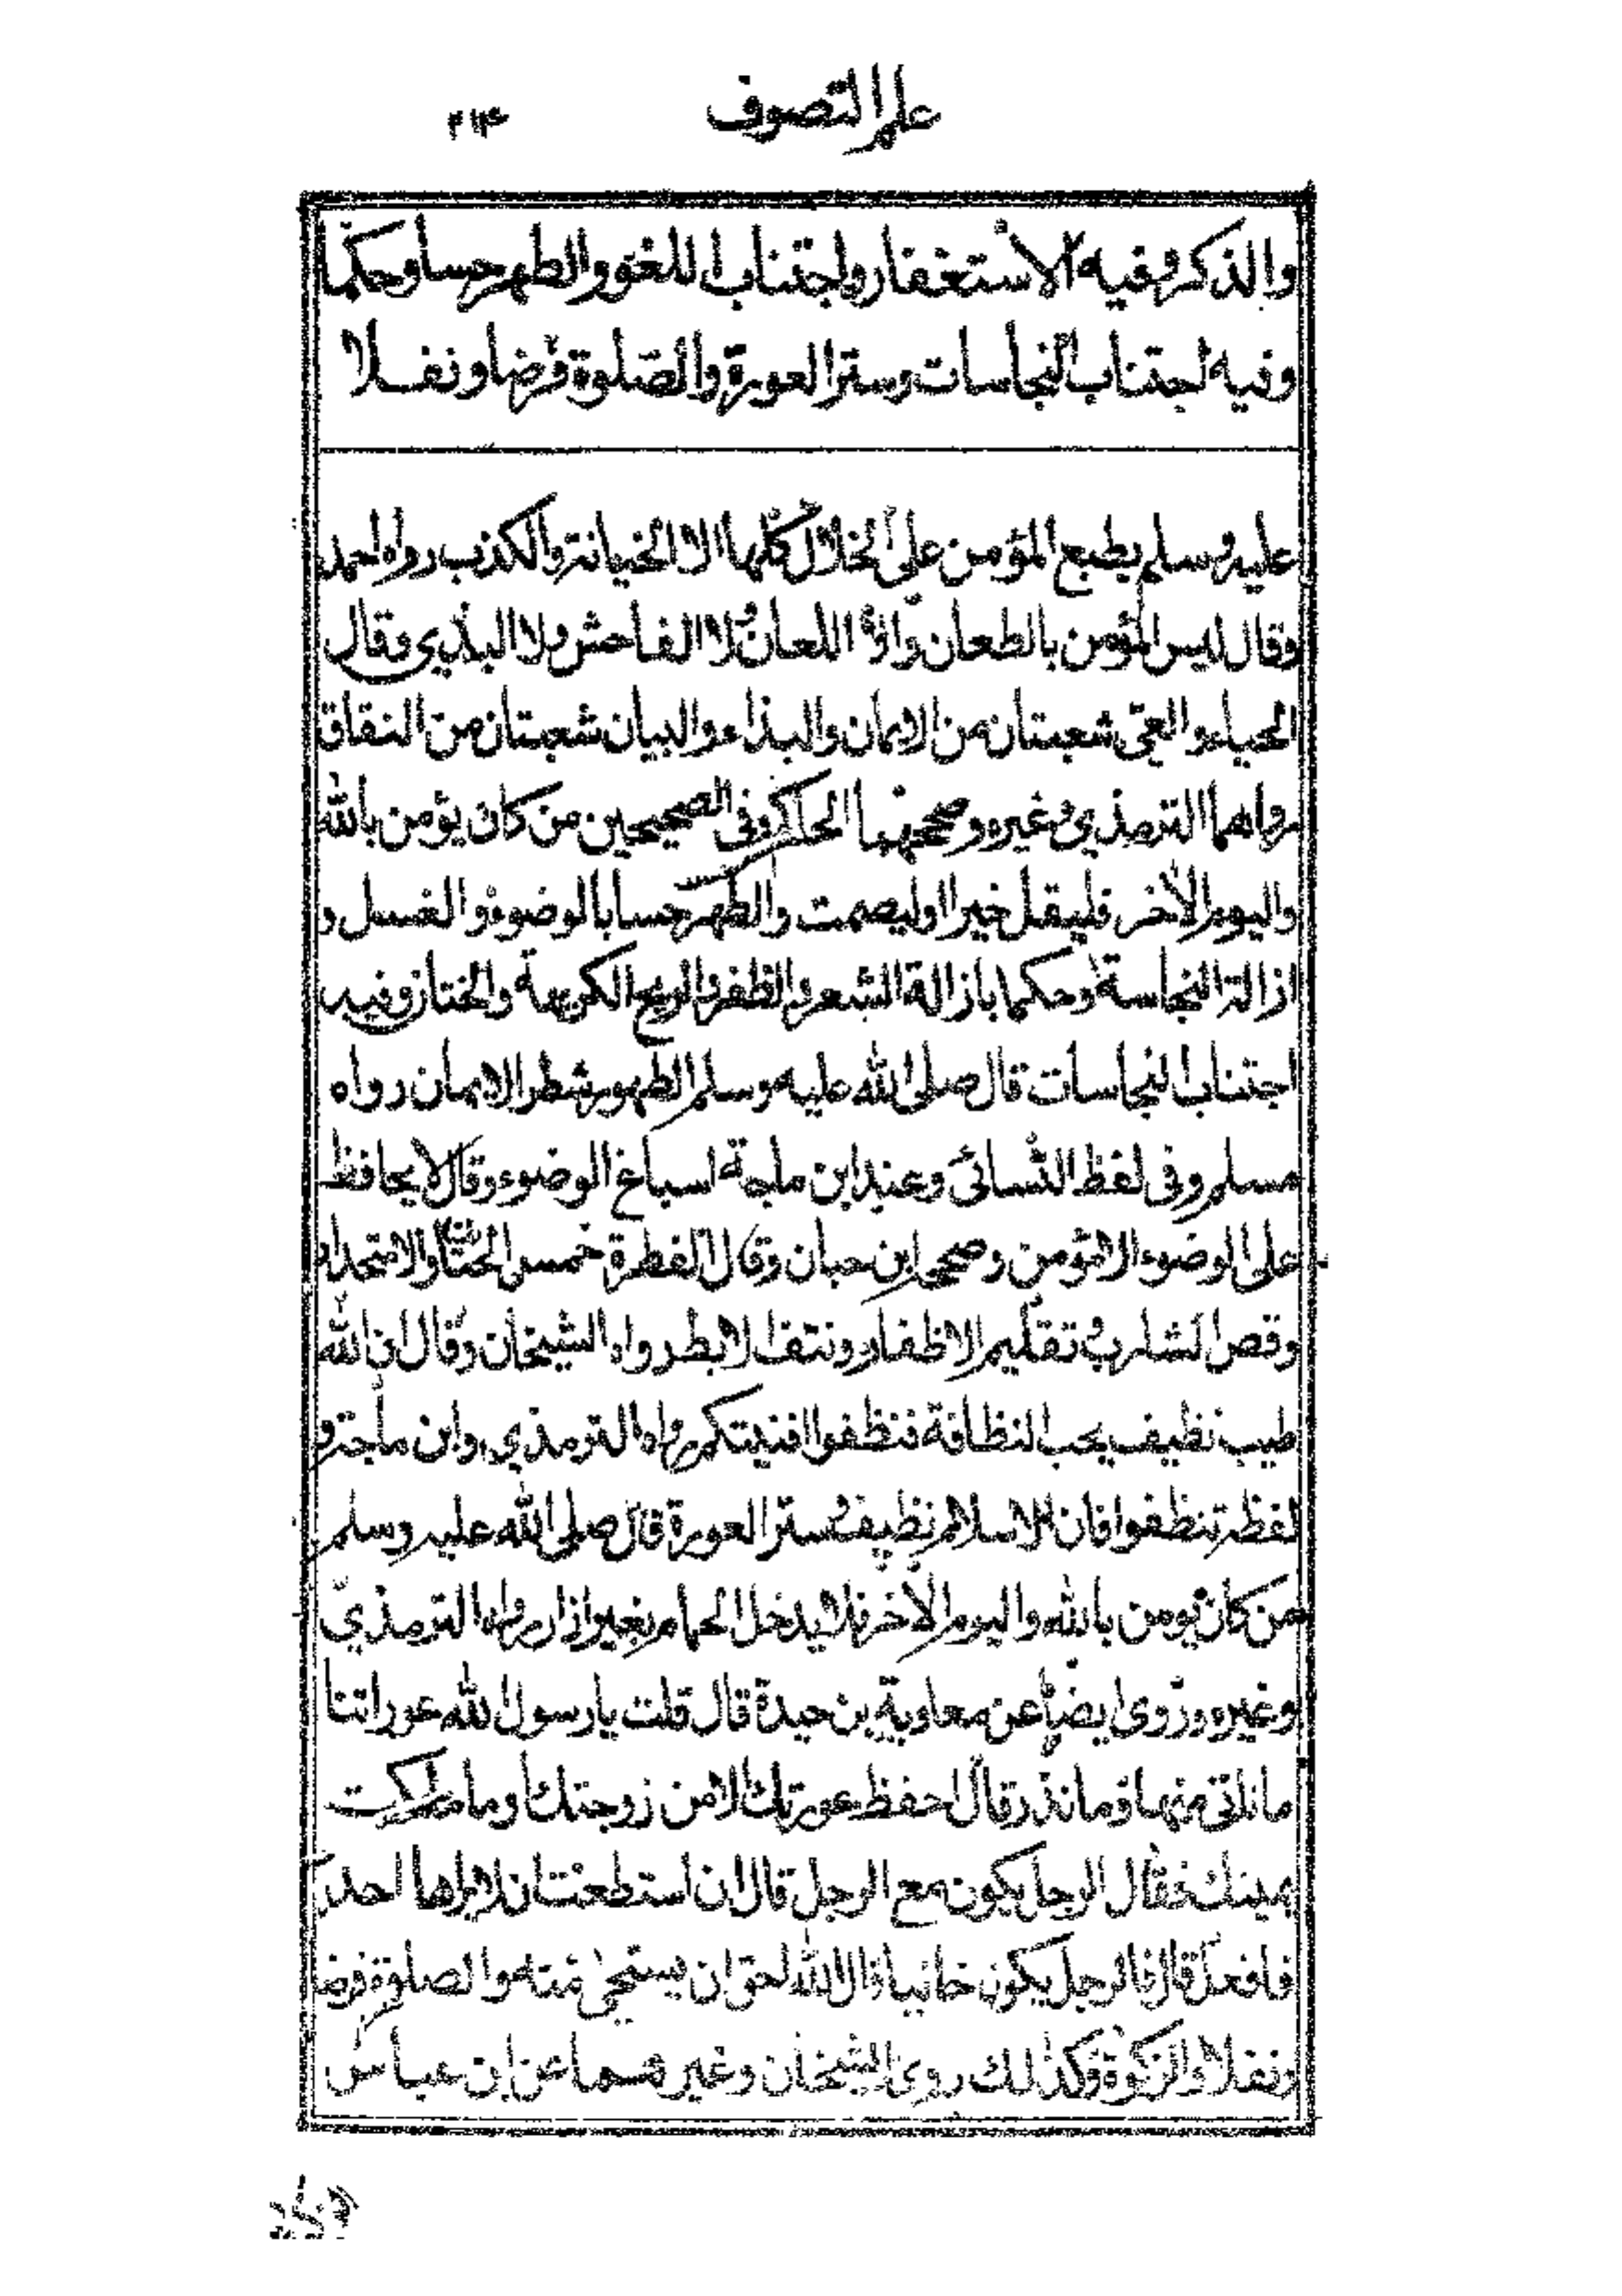 علم التصوف
٢١٤
والذكر وفيه الاستغفار واجتناب اللغو والطهر حسا وحكما
وفيه اجتناب النجاسات وستر العورة والصلوة فرضا ونفلا
عليه وسلم يطبع المؤمن على الخلال كلها الا الخيانة والكذب رواه احمد
وقال ليس المؤمن بالطعان ولا اللعان ولا الفاحش ولا البذي وقال
الحياء والعي شعبتان من الايمان والبذاء والبيان شعبتان من النفاق
رواهما الترمذي وغيره وصححهما الحاكم وفى الصحيحين من كان يؤمن بالله
واليوم الآخر فليقل خيرا او ليصمت والطهر حسا بالوضوء والغسل و
ازالة النجاسة وحكما بازالة الشعر والظفر والريح الكريهة والختان وفيه
اجتناب النجاسات قال صلى الله عليه وسلم الطهور شطر الايمان رواه
مسلم وفى لفظ النسائى وعند ابن ماجة اسباغ الوضوء وقال لا يحافظ
على الوضوء الا مؤمن وصححه ابن حبان وقال الفطرة خمس الختان والاستحداد
وقص الشارب وتقليم الاظفار ونتف الابط رواه الشيخان وقال ان الله
طيب نظيف يحب النظافة فنظفوا افنيتكم رواه الترمذي وابن ماجة و
لفظه تنظفوا فان الاسلام نظيف وستر العورة قال صلى الله عليه وسلم
من كان يؤمن بالله واليوم الآخر فلا يدخل الحمام بغير ازار رواه الترمذي
وغيره وروى ايضا عن معاوية بن حيدة قال قلت يا رسول الله عوراتنا
ما ناتى منها وما نذر قال احفظ عورتك الا من زوجتك او ما ملكت
يمينك فقال الرجل يكون مع الرجل قال ان استطعت ان لا يراها احد
فافعل قال فالرجل يكون خاليا قال الله احق ان يستحيى منه والصلوة فرضا
ونفلا والزكوة كذلك روى الشيخان وغيرهما عن ابن عباس